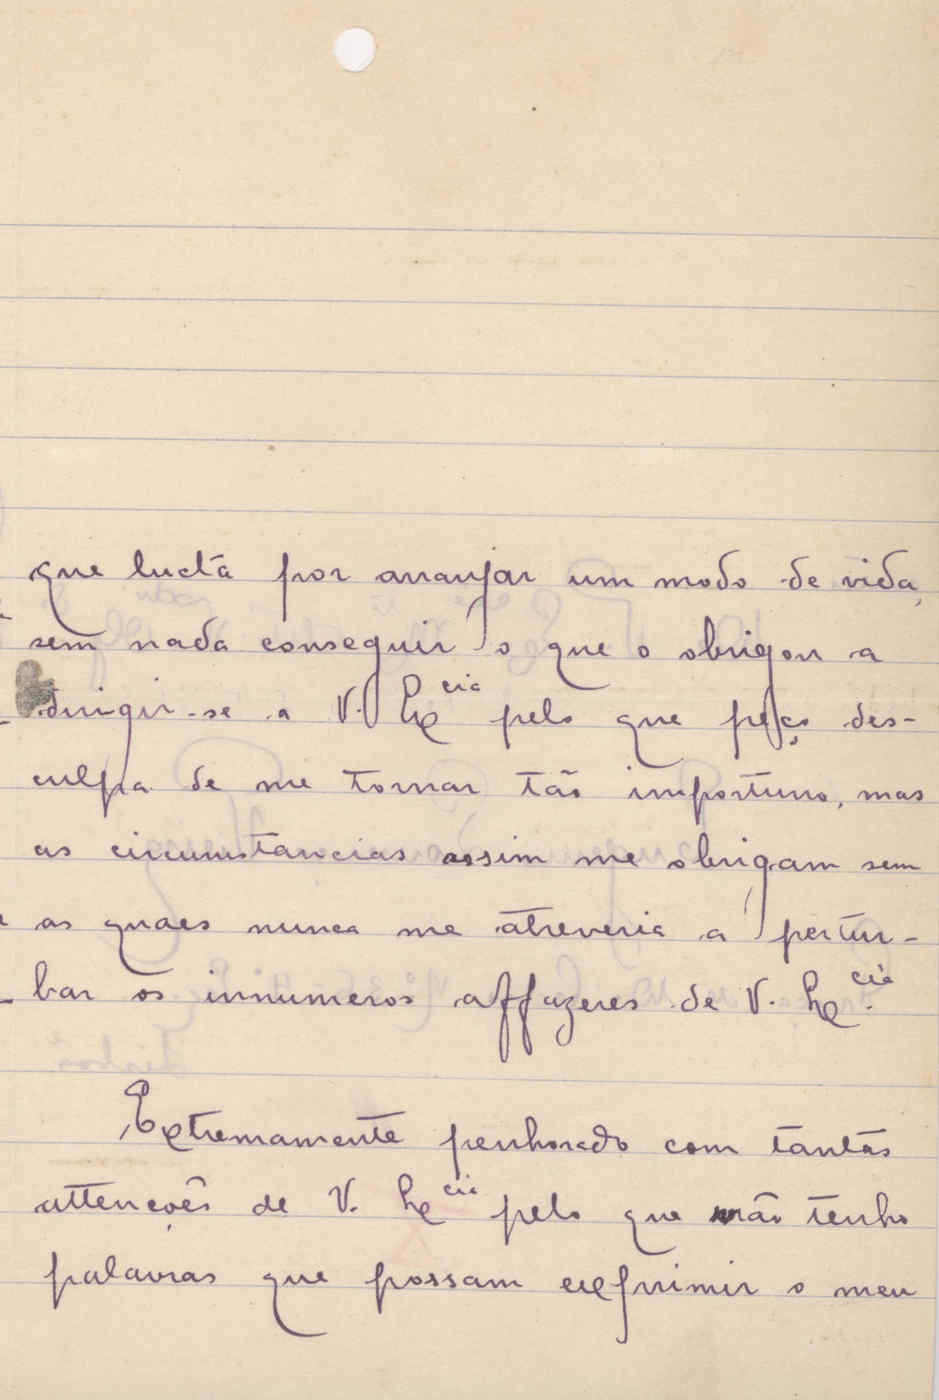 que lucta por arranjar um modo de vida,
sem nada conseguir o que o obrigou a
dirigir-se a V. Excia pelo que peço des-
culpa de me tornar tão importuno, mas
as circumstancias assim me obrigam sem
as quaes nunca me atreveria a pertur-
bar os innumeros affazeres de V. Excia.
Extremamente penhorado com tantas
attenções de V. Excia pelo que não tenho
palavras que possam exprimir o meu